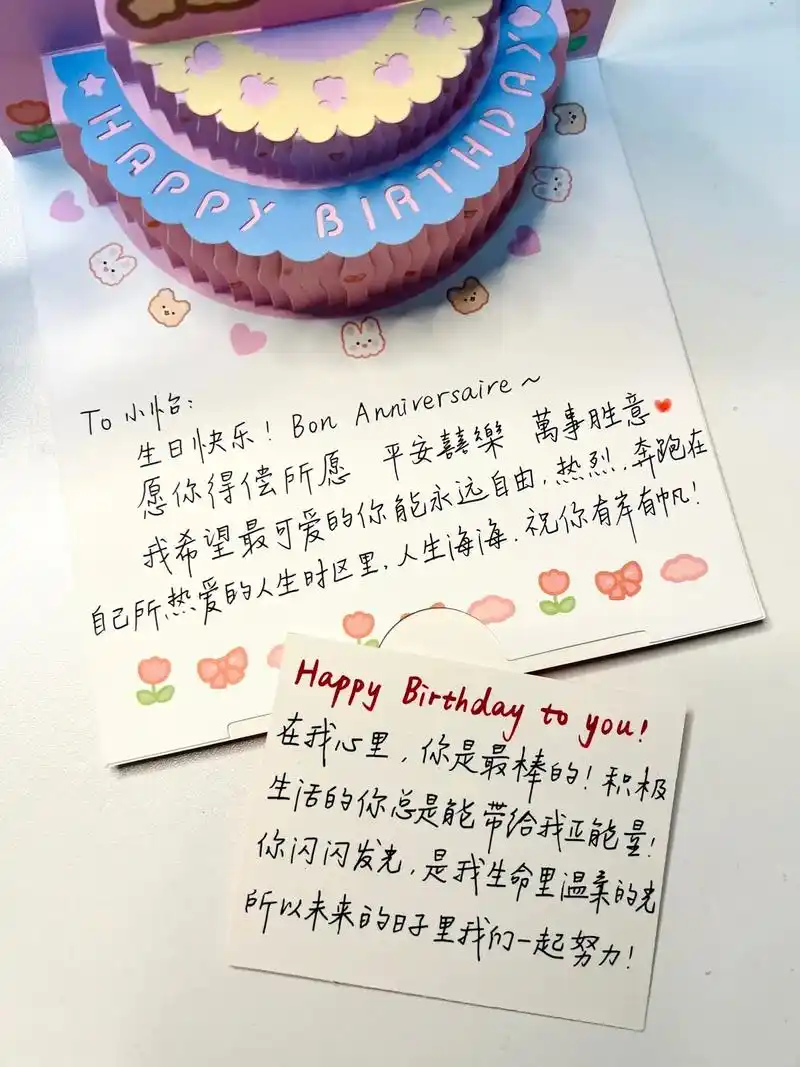 HAPPY BIRTHDAY
To 小怡:
生日快乐! Bon Anniversaire~
愿你得偿所愿 平安喜樂 萬事胜意
我希望最可爱的你能永远自由,热烈,奔跑在
自己所热爱的人生时区里,人生海海,祝你有岸有帆!
Happy Birthday to you!
在我心里,你是最棒的!积极
生活的你总是能带给我正能量!
你闪闪发光,是我生命里温柔的光
所以未来的日子里我们一起努力!